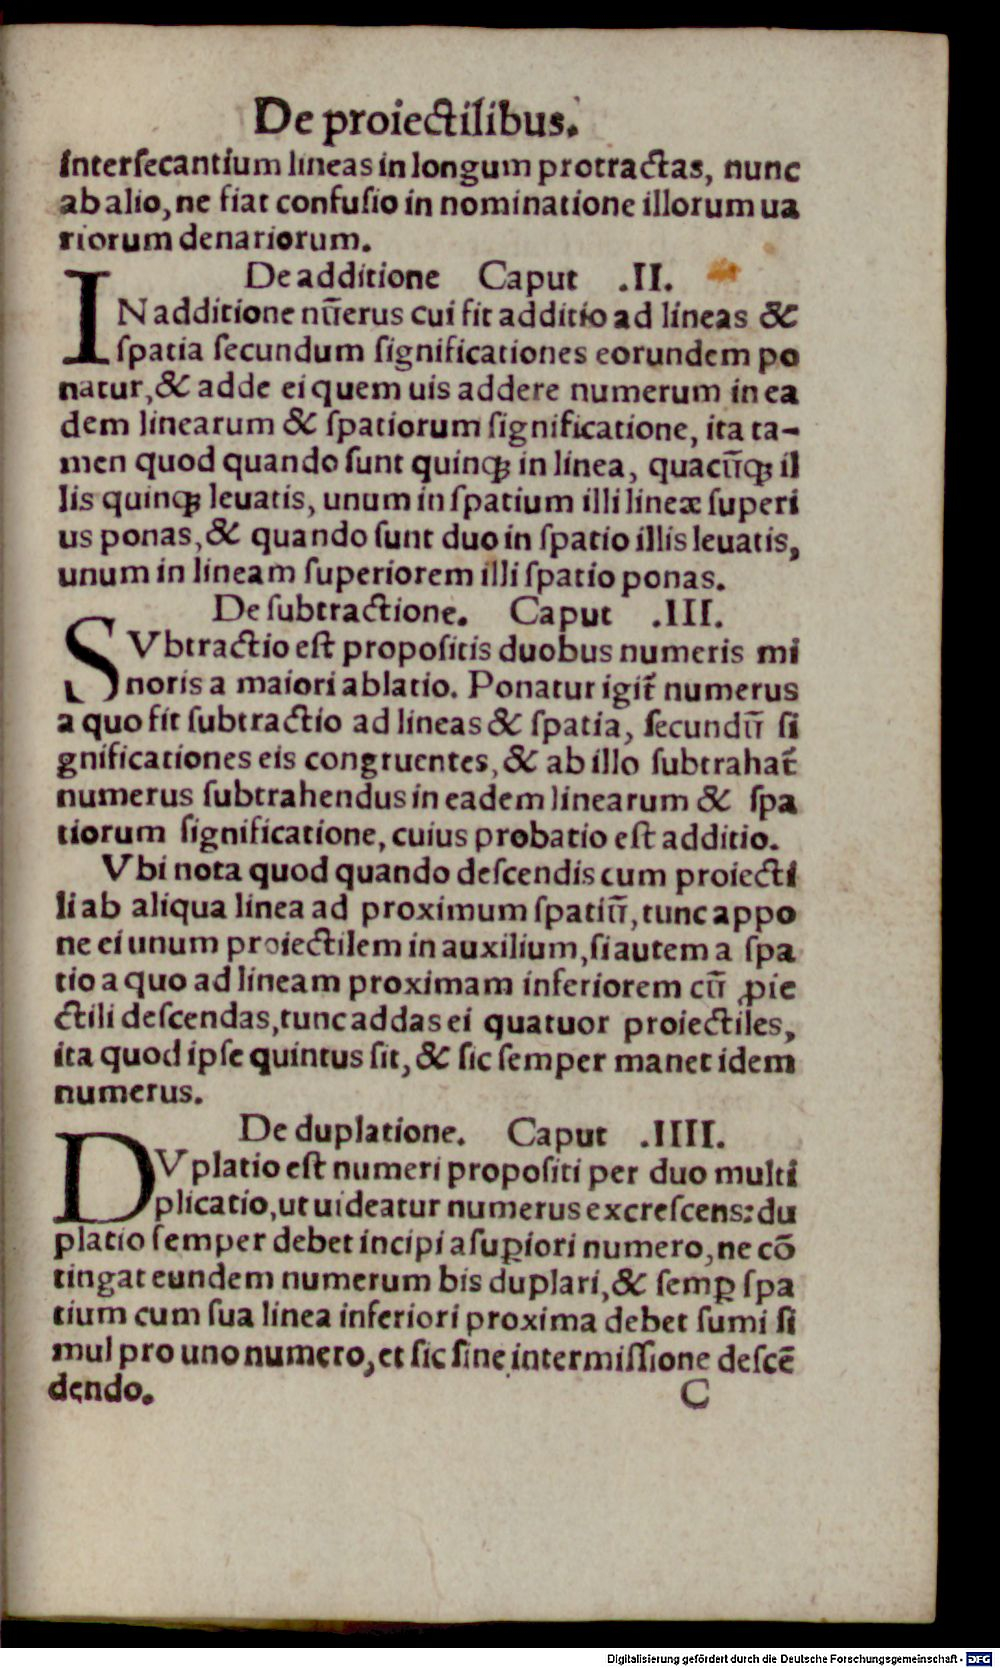 De proiectilibus.
interſecantium lineas in longum protractas, nunc
ab alio, ne fiat confuſio in nominatione illorum ua
riorum denariorum.
De additione Caput .II.
IN additione nūerus cui fit additio ad lineas &
ſpatia ſecundum ſignificationes eorundem po
natur, & adde ei quem uis addere numerum in ea
dem linearum & ſpatiorum ſignificatione, ita ta-
men quod quando ſunt quinqꝫ in linea, quacūqꝫ il
lis quinqꝫ leuatis, unum in ſpatium illi lineæ ſuperi
us ponas, & quando ſunt duo in ſpatio illis leuatis,
unum in lineam ſuperiorem illi ſpatio ponas.
De ſubtractione. Caput .III.
SVbtractio eſt propoſitis duobus numeris mi
noris a maiori ablatio. Ponatur igit̄ numerus
a quo fit ſubtractio ad lineas & ſpatia, ſecundū ſi
gnificationes eis congruentes, & ab illo ſubtrahat̄
numerus ſubtrahendus in eadem linearum & ſpa
tiorum ſignificatione, cuius probatio eſt additio.
Vbi nota quod quando deſcendis cum proiecti
li ab aliqua linea ad proximum ſpatiū, tunc appo
ne ei unum proiectilem in auxilium, ſi autem a ſpa
tio a quo ad lineam proximam inferiorem cū ꝓie
ctili deſcendas, tunc addas ei quatuor proiectiles,
ita quod ipſe quintus ſit, & ſic ſemper manet idem
numerus.
De duplatione. Caput .IIII.
DVplatio eſt numeri propoſiti per duo multi
plicatio, ut uideatur numerus excreſcens: du
platio ſemper debet incipi a ſuꝑiori numero, ne cō
tingat eundem numerum bis duplari, & ſemꝑ ſpa
tium cum ſua linea inferiori proxima debet ſumi ſi
mul pro uno numero, et ſic ſine intermiſſione deſcē
dendo. C
Digitalisierung gefördert durch die Deutsche Forschungsgemeinschaft - DFG